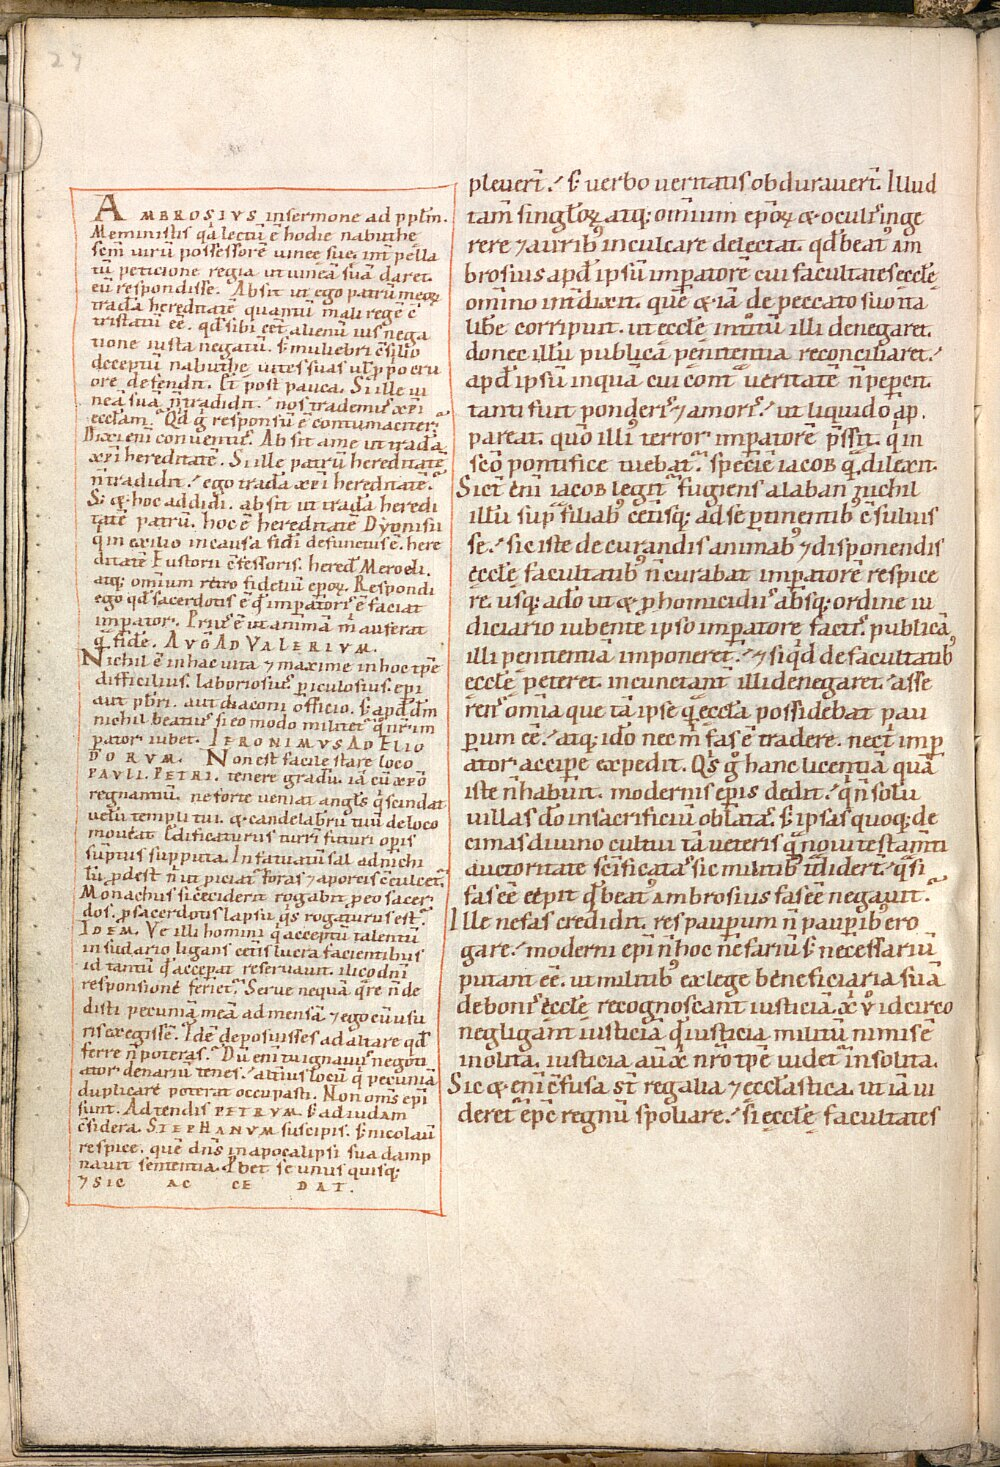 27
AMBROSIVS in sermone ad pplm̄.
Meministis qa lectū ē hodie nabuthe
scm̄ virū possessorē vinee sue. int̄pella
tū peticione regia ut vineā suā daret.
eū respondisse. Absit ut ego patrū meoꝝ
tradā hereditatē quantū mali regē cͨ
tristatū eē. qd̄ sibi eēt alienū ius nega
tione iusta negatū. sꝫ muliebri cͨsilio
deceptū nabuthe vites suas ul̄ p̱po cru
ore defendit. Et post pauca. Si ille vi
neā suā n̄ tradidit. nos trademus xp̄i
eccl̄am. Qd̄ g̊ responsū ē contumaciter?
Dixi eni conventus. Absit a me ut tradā
xp̄i hereditatē. Si ille patrū hereditatē
n̄ tradidit. ego tradā xp̄i hereditatē?
Sꝫ & hoc addidi. absit ut tradā heredi
tatē patrū. hoc ē hereditatē Dyonisii
q̇ in exilio in causa fidei defunctus ē. here
ditatē Eustorii cͨfessoris. hered̄ Merocli.
atq; omniū retro fideliū epoꝝ. Respondi
ego qd̄ sacerdotis ē qd̄ imperatoris ē faciat
imperator. Prius ē ut animā m̄ auferat
quā fidē. AVG AD VALERIVM.
Nichil ē in hac vita ⁊ maxime in hoc tp̄e
difficilius. laboriosius. periculosius. epi
aut pb̄ri. aut diaconi officio. sꝫ apd̄ dm̄
nichil beatius si eo modo militet̄ q̇ nr̄ im
perator iubet. IERONIMVS AD ELIO
DORVM. Non est facile stare loco
PAVLI. PETRI. tenere gradū. iā cū xp̄o
regnantiū. ne forte veniat angl̄s q̇ scindat
velū templi tui. & candelabrū tuū de loco
moveat. Edificaturus turrī futuri opis
sūptus supputa. Infatuatū sal ad nichi
lū prodest n̄ ut piciat̄ foras ⁊ a porcis cͨculcet̄.
Monachus si ceciderit rogabit p̱ eo sacer
dos. p̱ sacerdotis lapsu q̇s rogaturus est?
IDEM. Ve illi homini q̇ acceptū talentū
in sudario ligans cet̄is lucra facientibus
id tantū qd̄ acceperat reservavit. ilico dn̄i
responsione feriet̄. Serve nequā q̄re n̄ de
disti pecuniā meā ad mensā ⁊ ego cū usu
ris exegissē. Id ē deposuisses ad altare qd̄
ferre n̄ poteras. Dū eni tu ignavus negoti
ator denariū tenes. alt̄ius locū q̇ pecuniā
duplicare poterat occupasti. Non om̄s epi
sunt. Adtendis PETRVM. sꝫ ad iudam
cͨsidera. STEPHANVM suscipis. sꝫ nicolaū
respice. quē dn̄s in apocalipsi sua damp
navit sententia. Probet se unus quisq;
⁊ SIC AC CE DAT.
pleverī. sꝫ verbo veritatis obduraverī. Illud
tam̄ singl̄oꝝ atq; omnium epoꝝ & oculis inge
rere ⁊ aurib; inculcare delectat. qd̄ beatꝰ am
brosius apd̄ ipsū imperatorē cui facultates eccl̄e
omnino int̄dixit. quē & iā de peccato suo ita
libe corripuit. ut eccl̄e introitū illi denegaret.
donec illū publica penitentia reconciliaret.
apd̄ ipsū inquā cui contra veritatē n̄ peperc̄.
tanti fuit ponderis ⁊ amoris. ut liquido ap
pareat. quō illiꝰ terror imperatorē p̄ssit. q̇ in
sc̄o pontifice tuebat̄. speciē iacob quā dilexit.
Sicut eni iacob legit̄ fugiens a laban nichil
illū suꝑ filiab; cet̄isq; ad se pertinentib; cͨsuluis
se. sic iste de curandis animab; ⁊ disponendis
eccl̄e facultatib; n̄ curabat imperatorē respice
re. usq; adeo ut & p̱ homicidiis absq; ordine iu
diciario iubente ipso imperatore factis. publicā
illi penitentiā imponeret. ⁊ siqd̄ de facultatib;
eccl̄e peteret. incunctant̄ illi denegaret. asse
rens omnia que tā ipse quā eccl̄a possidebat pau
perum eē. atq; ideo nec m̄ fas ē tradere. nec t̄ imp
ator accipere expedit. Qs g̊ hanc licentiā quā
iste n̄ habuit. modernis ep̄is dedit. q̇ n̄ solū
villas dō in sacrificiū oblatas. sꝫ ipsas quoq; de
cimas divino cultui tā veteris quā novi testam̄ti
auctoritate sc̄ificatas sic militib; t̄didert̄. quasi
fas eē ceperit qd̄ beatꝰ ambrosius fas eē negavit?
Ille nefas credidit. res pauperum n̄ pauperib; ero
gare. moderni epi n̄ hoc nefariū sꝫ necessariū
putant eē. ut militib; ex lege beneficiaria suā
de bonis eccl̄e recognoscant iusticiā. xp̄i v̊ idcirco
negligant iusticiā q̇ iusticia militū nimis ē
inolita. iusticia aū xp̄i nr̄o tp̄e videt̄ insolita.
Sic & eni cͨfusa st̄ regalia ⁊ eccl̄astica. ut iā vi
deret̄ epc̄ regnū spoliare. si eccl̄e facultates